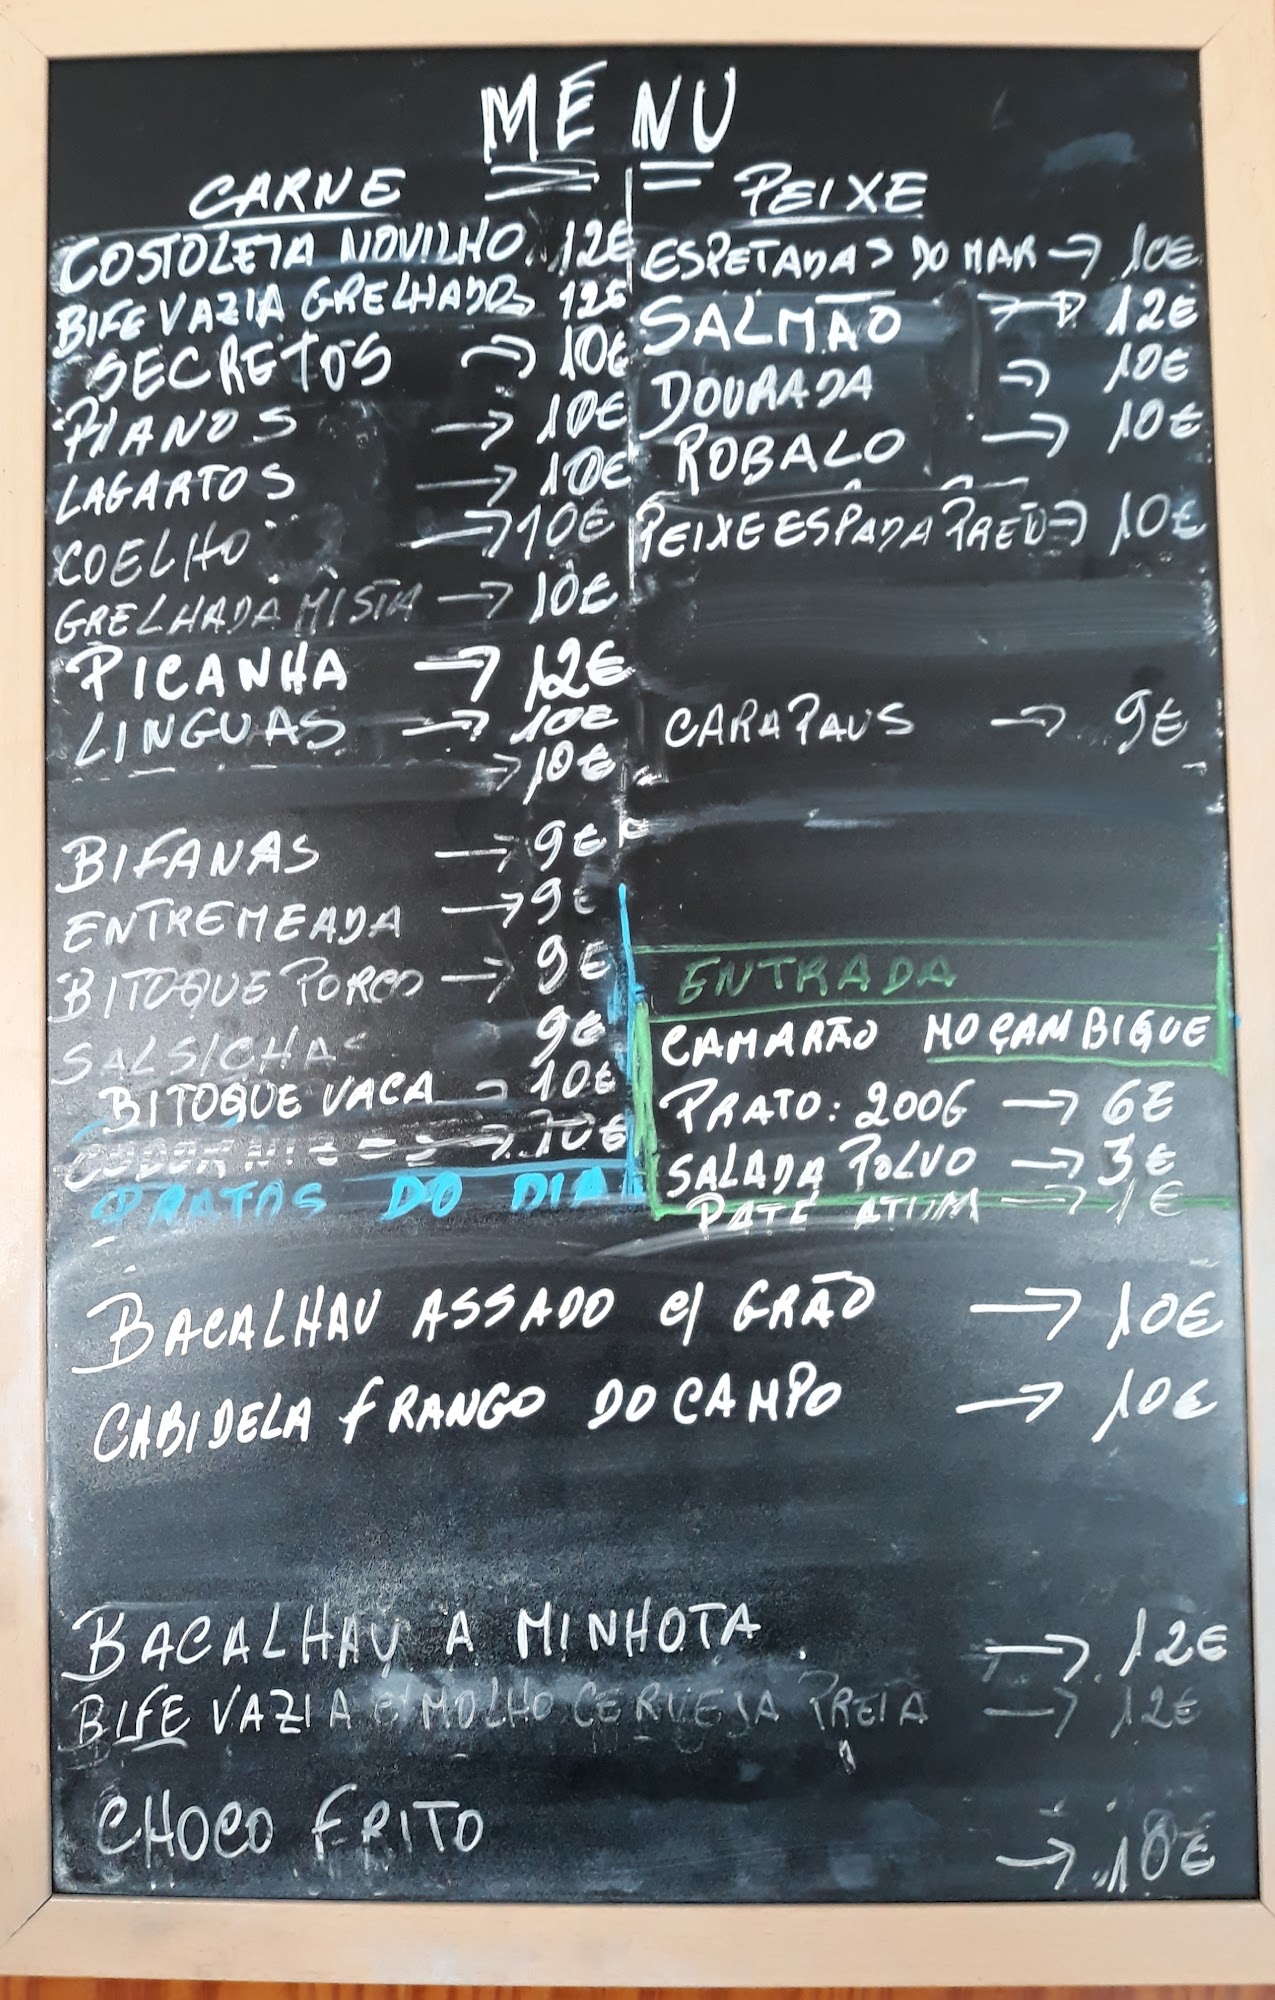 MENU
CARNE
COSTOLETA NOVILHO 12€
BIFE VAZIA GRELHADOS 12€
SECRETOS → 10€
PIANOS → 10€
LAGARTOS → 10€
COELHO → 10€
GRELHADA MISTA → 10€
PICANHA → 12€
LINGUAS → 10€
→ 10€
BIFANAS → 9€
ENTREMEADA → 9€
BITOQUE PORCO → 9€
SALSICHAS 9€
BITOQUE VACA → 10€
→ 10€
PEIXE
ESPETADAS DO MAR → 10€
SALMÃO → 12€
DOURADA → 10€
ROBALO → 10€
PEIXE ESPADA PRETO → 10€
CARAPAUS → 9€
ENTRADA
CAMARÃO MOÇAMBIQUE
PRATO: 200G → 6€
SALADA POLVO → 3€
PATÉ ATUM → 1€
PRATOS DO DIA
BACALHAU ASSADO C/ GRÃO → 10€
CABIDELA FRANGO DO CAMPO → 10€
BACALHAU A MINHOTA → 12€
BIFE VAZIA C/ MOLHO CERVEJA PRETA → 12€
CHOCO FRITO → 10€